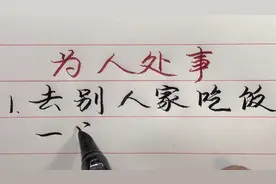 为人处事
1.去别人家吃饭
一